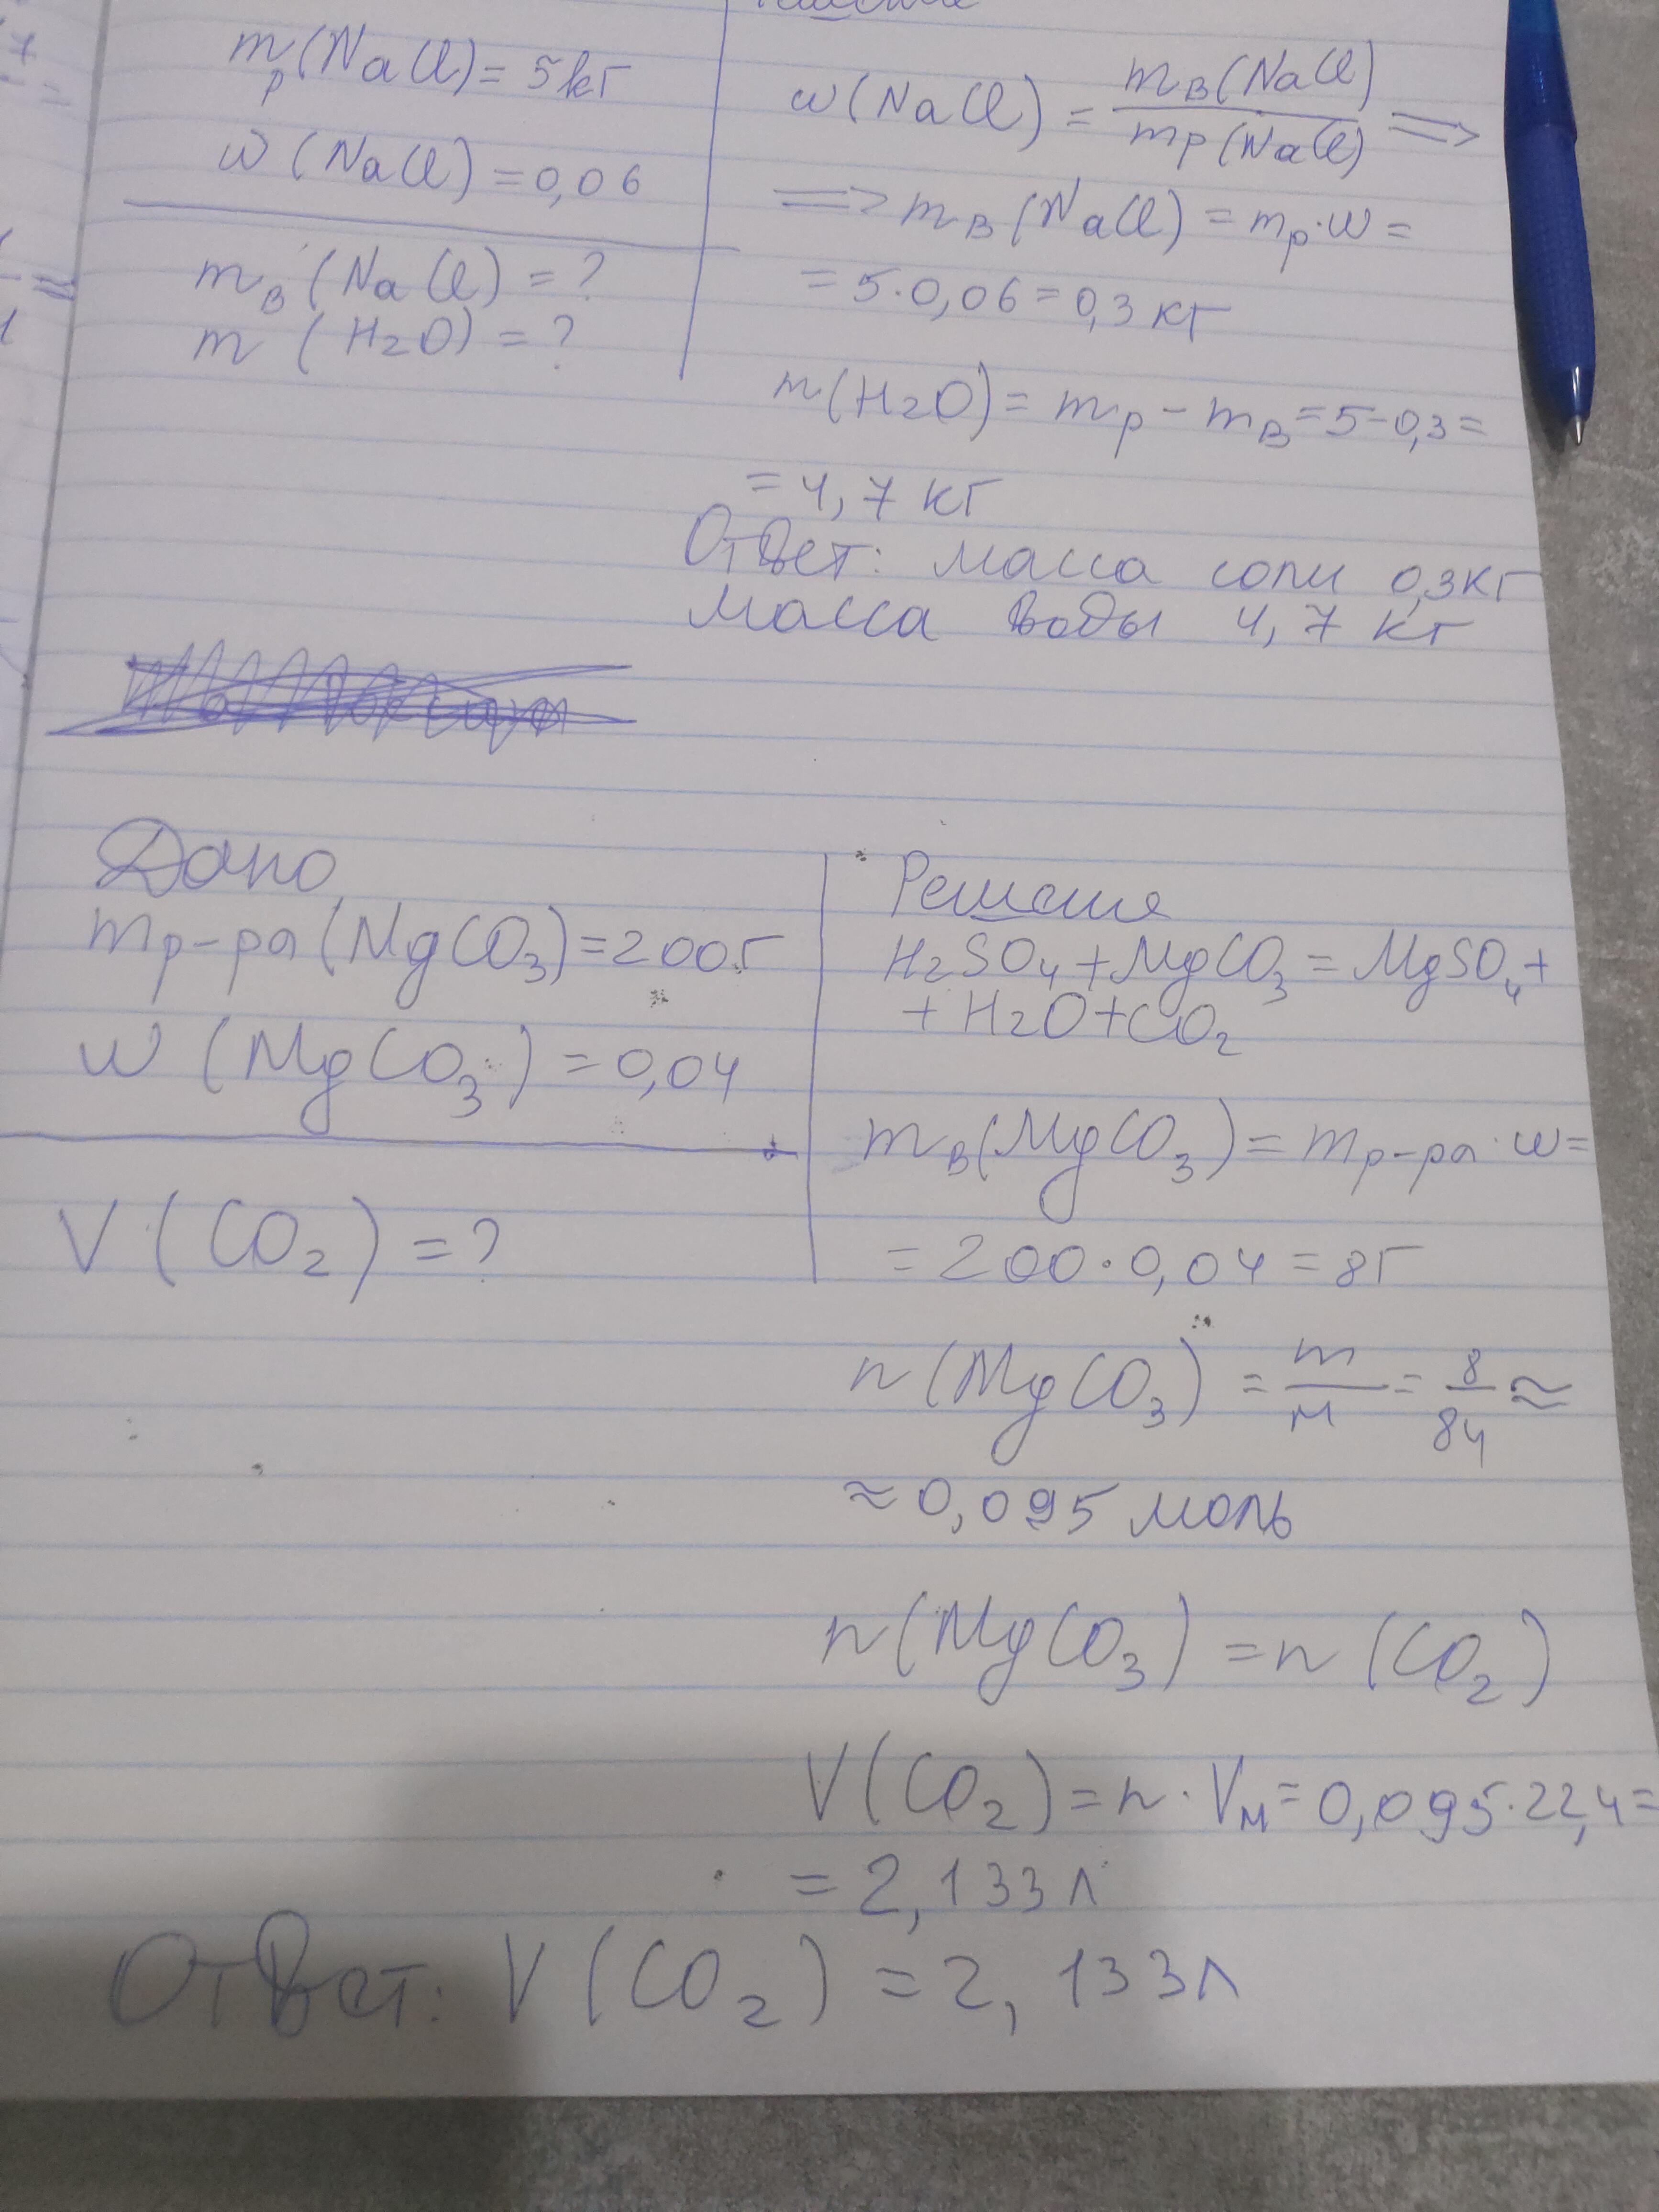 Решение
mр(NaCl)=5кг
w(NaCl)=0,06
mв(NaCl)=?
m(H2O)=?
w(NaCl)=mв(NaCl)/mр(NaCl) =>
=> mв(NaCl)=mр·w=
=5·0,06=0,3 кг
m(H2O)=mр-mв=5-0,3=
=4,7 кг
Ответ: масса соли 0,3кг
масса воды 4,7 кг
Дано
mр-ра(MgCO3)=200г
w(MgCO3)=0,04
V(CO2)=?
Решение
H2SO4+MgCO3=MgSO4+
+H2O+CO2
mв(MgCO3)=mр-ра·w=
=200·0,04=8г
n(MgCO3)=m/M=8/84≈
≈0,095 моль
n(MgCO3)=n(CO2)
V(CO2)=n·Vм=0,095·22,4=
=2,133л
Ответ: V(CO2)=2,133л